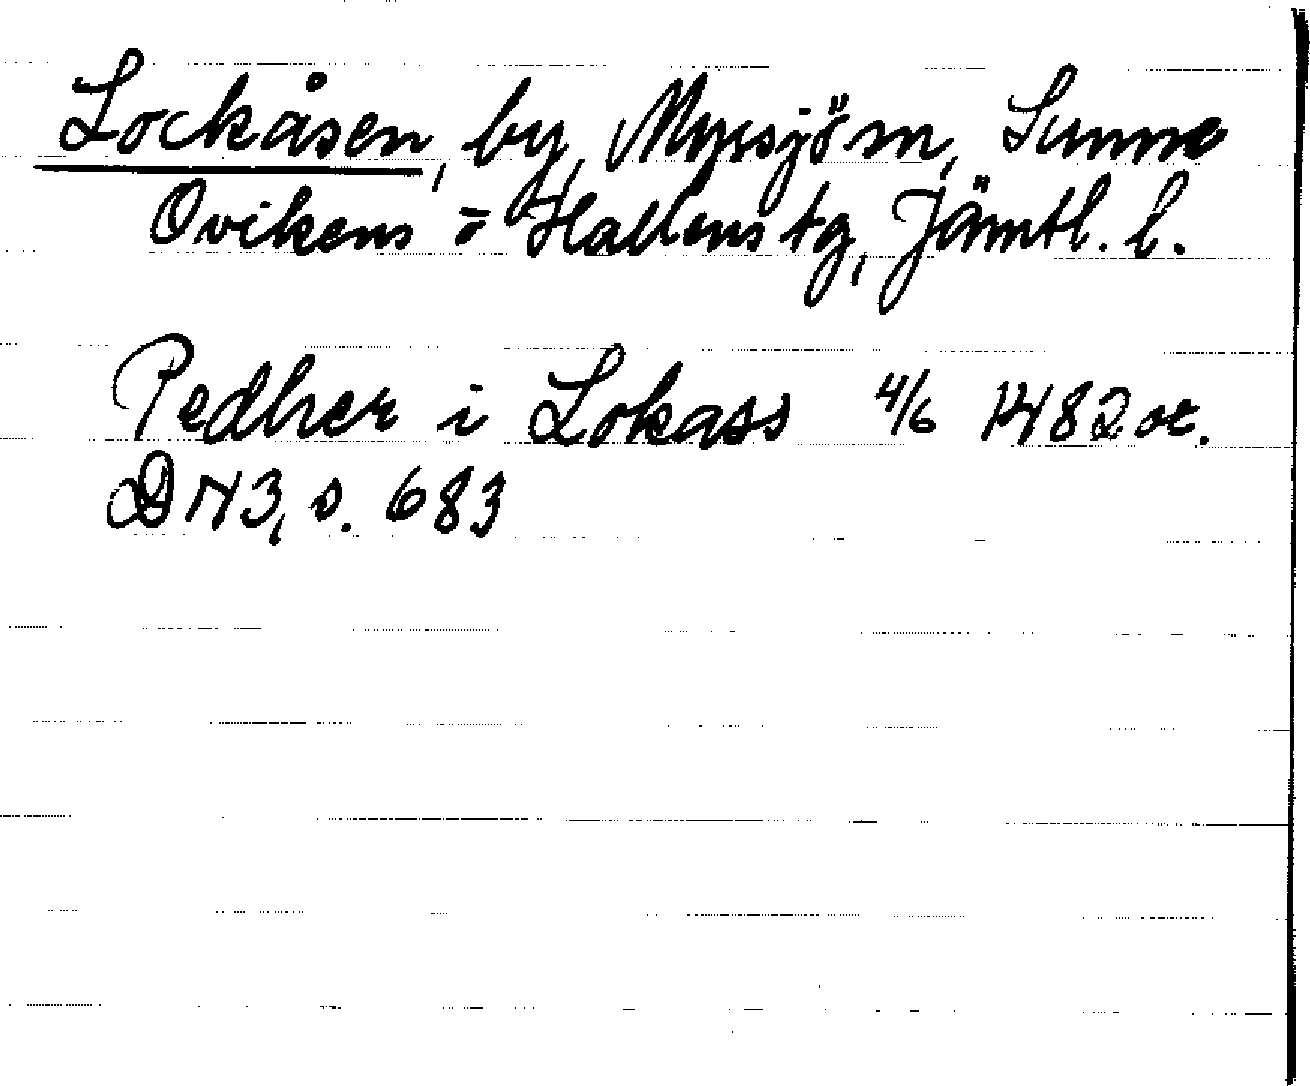 Lockåsen, by, Myrsjö sn, Sunne
Ovikens o Hallens tg, Jämtl. l.
Pedher i Lokass 4/6 1482 or.
DN 3, s. 683